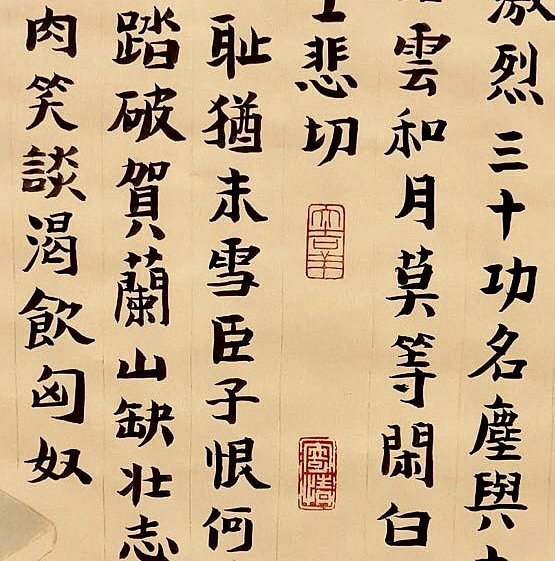 激烈三十功名塵與
雲和月莫等閑白
悲切
大吉羊
耻猶未雪臣子恨何
踏破賀蘭山缺壯志
肉笑談渴飲匈奴